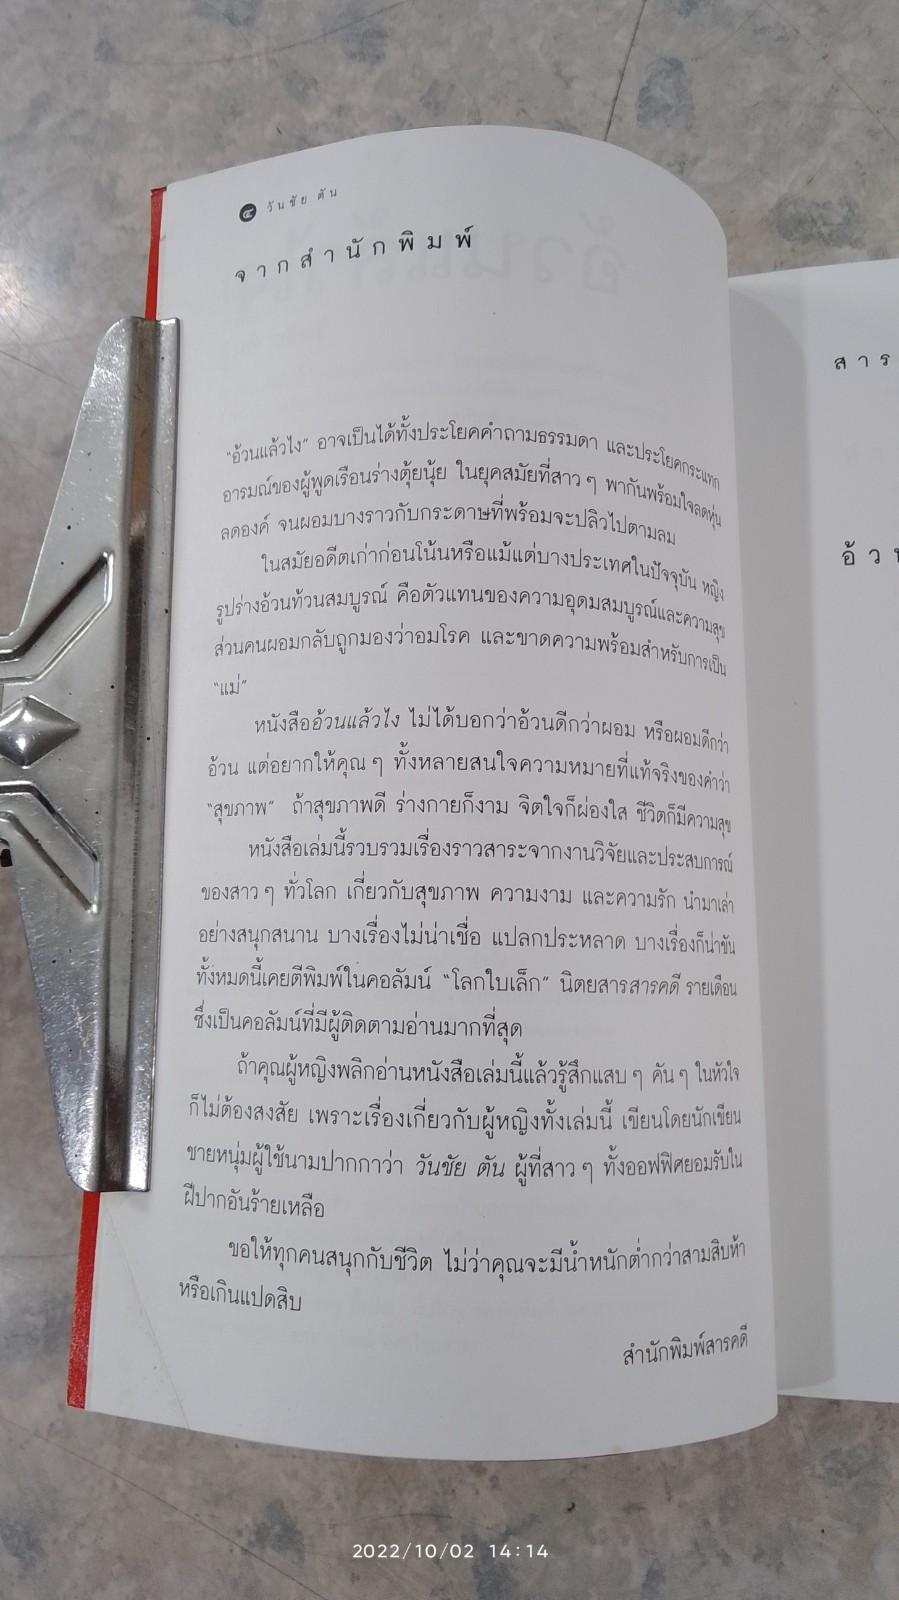 ๔ วันชัย ตัน
จากสำนักพิมพ์
"อ้วนแล้วไง" อาจเป็นได้ทั้งประโยคคำถามธรรมดา และประโยคกระแทก
อารมณ์ของผู้พูดเรือนร่างตุ้ยนุ้ย ในยุคสมัยที่สาว ๆ พากันพร้อมใจลดหุ่น
ลดองค์ จนผอมบางราวกับกระดาษที่พร้อมจะปลิวไปตามลม
ในสมัยอดีตเก่าก่อนโน้นหรือแม้แต่บางประเทศในปัจจุบัน หญิง
รูปร่างอ้วนท้วนสมบูรณ์ คือตัวแทนของความอุดมสมบูรณ์และความสุข
ส่วนคนผอมกลับถูกมองว่าอมโรค และขาดความพร้อมสำหรับการเป็น
"แม่"
หนังสืออ้วนแล้วไง ไม่ได้บอกว่าอ้วนดีกว่าผอม หรือผอมดีกว่า
อ้วน แต่อยากให้คุณ ๆ ทั้งหลายสนใจความหมายที่แท้จริงของคำว่า
"สุขภาพ" ถ้าสุขภาพดี ร่างกายก็งาม จิตใจก็ผ่องใส ชีวิตก็มีความสุข
หนังสือเล่มนี้รวบรวมเรื่องราวสาระจากงานวิจัยและประสบการณ์
ของสาว ๆ ทั่วโลก เกี่ยวกับสุขภาพ ความงาม และความรัก นำมาเล่า
อย่างสนุกสนาน บางเรื่องไม่น่าเชื่อ แปลกประหลาด บางเรื่องก็น่าขัน
ทั้งหมดนี้เคยตีพิมพ์ในคอลัมน์ "โลกใบเล็ก" นิตยสารสารคดี รายเดือน
ซึ่งเป็นคอลัมน์ที่มีผู้ติดตามอ่านมากที่สุด
ถ้าคุณผู้หญิงพลิกอ่านหนังสือเล่มนี้แล้วรู้สึกแสบ ๆ คัน ๆ ในหัวใจ
ก็ไม่ต้องสงสัย เพราะเรื่องเกี่ยวกับผู้หญิงทั้งเล่มนี้ เขียนโดยนักเขียน
ชายหนุ่มผู้ใช้นามปากกาว่า วันชัย ตัน ผู้ที่สาว ๆ ทั้งออฟฟิศยอมรับใน
ฝีปากอันร้ายเหลือ
ขอให้ทุกคนสนุกกับชีวิต ไม่ว่าคุณจะมีน้ำหนักต่ำกว่าสามสิบห้า
หรือเกินแปดสิบ
สำนักพิมพ์สารคดี
สาร
อ้ว
2022/10/02 14:14